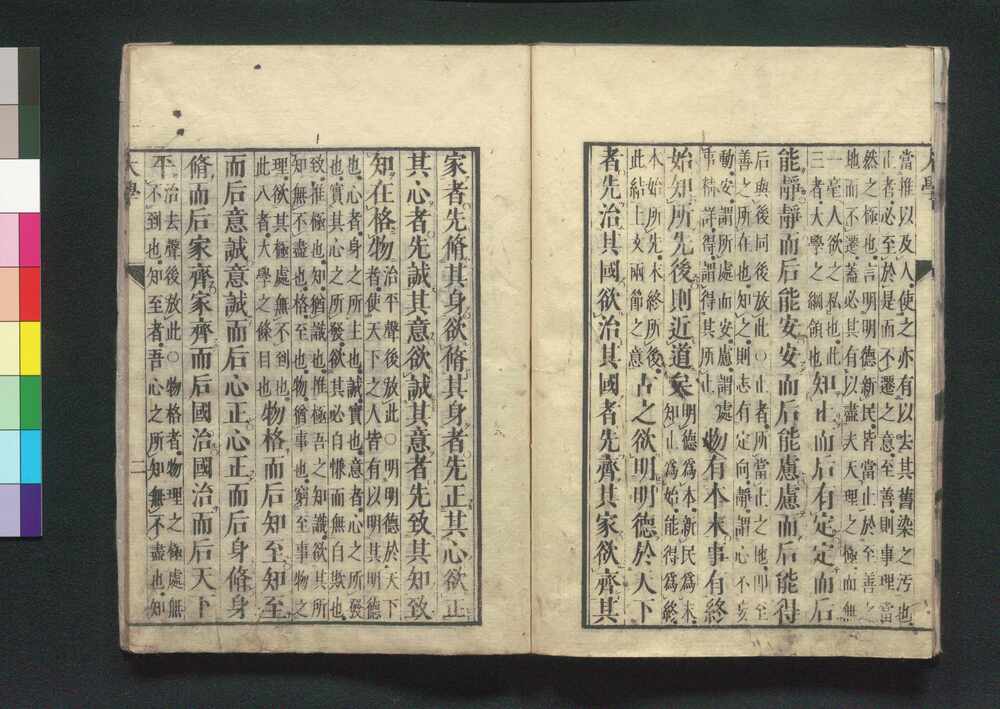 當推以及人使之亦有以去其舊染之汚也
止者必至於是而不遷之意至善則事理當
然之極也言明明德新民皆當止於至善之
地而不遷蓋必其有以盡夫天理之極而無
一毫人欲之私也此
三者大學之綱領也
知止而后有定定而后
能靜靜而后能安安而后能慮慮而后能得
后與後同後放此○止者所當止之地即至
善之所在也知之則志有定向靜謂心不妄
動安謂所處而安慮謂處
事精詳得謂得其所止
物有本末事有終
始知所先後則近道矣
明德爲本新民爲末
知止爲始能得爲終
本始所先末終所後
此結上文兩節之意
古之欲明明德於天下
者先治其國欲治其國者先齊其家欲齊其
家者先脩其身欲脩其身者先正其心欲正
其心者先誠其意欲誠其意者先致其知致
知在格物
治平聲後放此○明明德於天下
者使天下之人皆有以明其明德
也心者身之所主也誠實也意者心之所發
也實其心之所發欲其必自慊而無自欺也
致推極也知猶識也推極吾之知識欲其所
知無不盡也格至也物猶事也窮至事物之
理欲其極處無不到也
此八者大學之條目也
物格而后知至知至
而后意誠意誠而后心正心正而后身脩身
脩而后家齊家齊而后國治國治而后天下
平
治去聲後放此○物格者物理之極處無
不到也知至者吾心之所知無不盡也知
大學 二